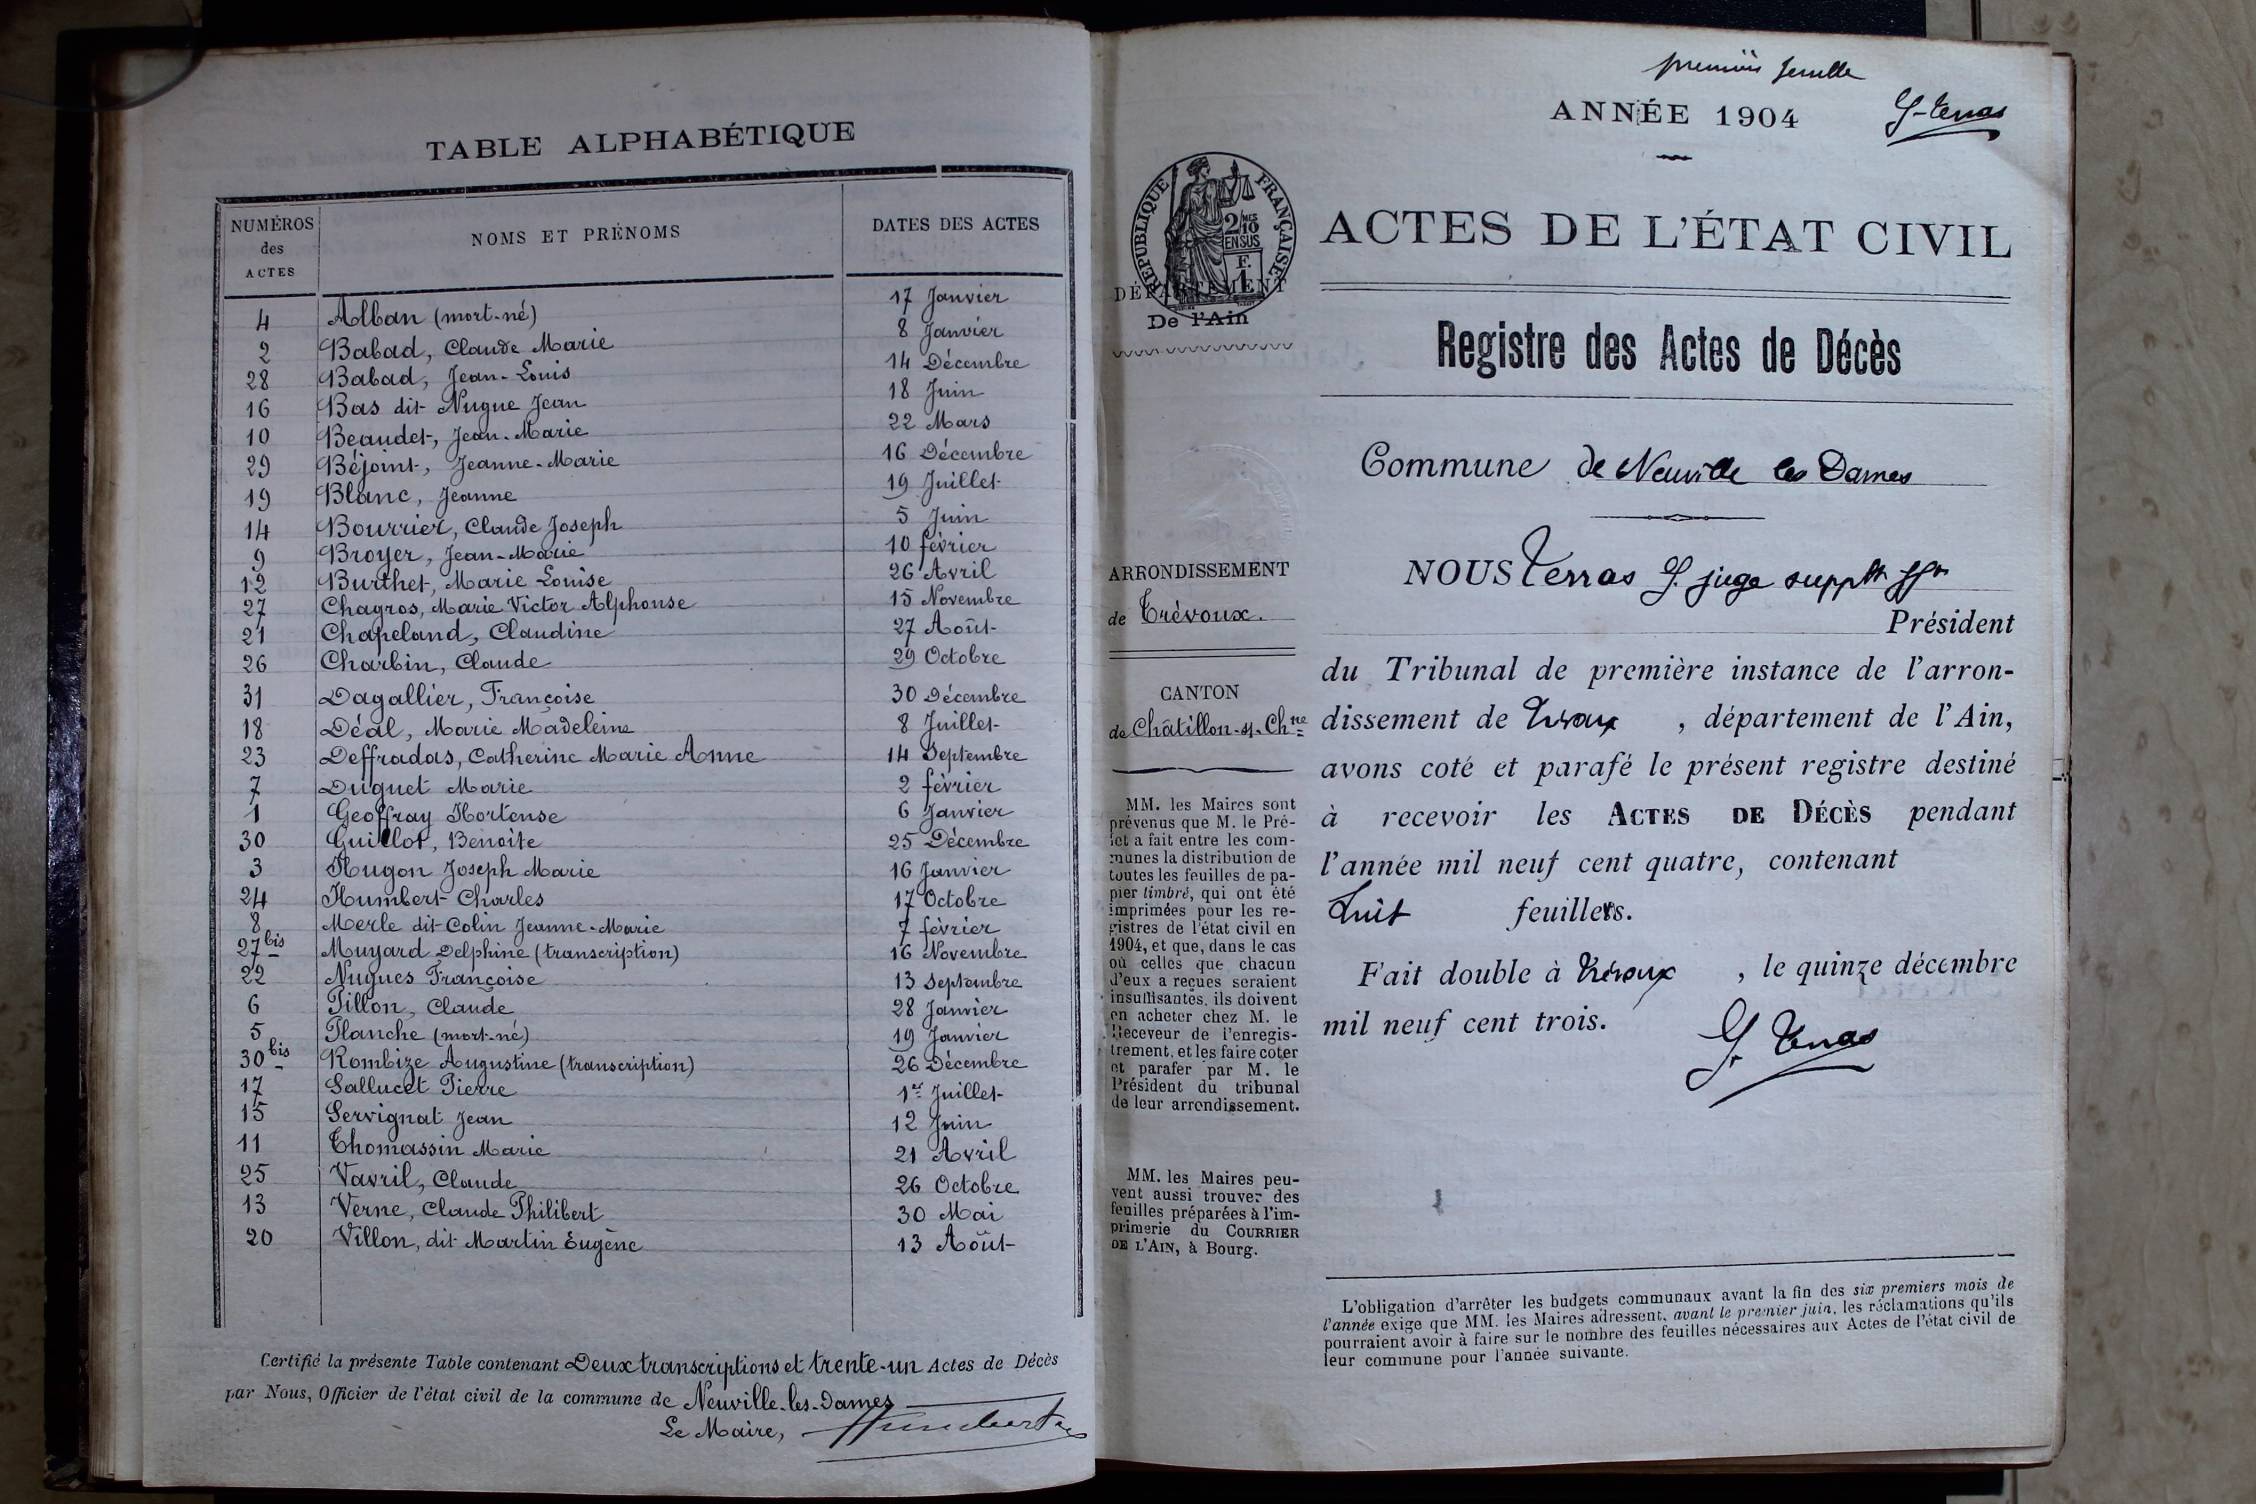 TABLE ALPHABÉTIQUE
NUMÉROS des ACTES NOMS ET PRÉNOMS DATES DES ACTES
4 Alban (mort-né) 17 Janvier
2 Babad, Claude Marie 8 Janvier
28 Babad, Jean-Louis 14 Décembre
16 Bas dit Nugue Jean 18 Juin
10 Beaudet, Jean-Marie 22 Mars
29 Béjoint, Jeanne-Marie 16 Décembre
19 Blanc, Jeanne 19 Juillet
14 Bourrier, Claude Joseph 5 Juin
9 Broyer, Jean-Marie 10 février
12 Burthet, Marie Louise 26 Avril
27 Chagros, Marie Victor Alphonse 15 Novembre
21 Chapeland, Claudine 27 Août
26 Charbin, Claude 29 Octobre
31 Dagallier, Françoise 30 Décembre
18 Déal, Marie Madeleine 8 Juillet
23 Deffradas, Catherine Marie Anne 14 Septembre
7 Duguet Marie 2 février
1 Geoffray Hortense 6 Janvier
30 Guillot, Benoîte 25 Décembre
3 Hugon Joseph Marie 16 Janvier
24 Humbert Charles 17 Octobre
8 Merle dit Colin Jeanne-Marie 7 février
27 bis Muyard Delphine (transcription) 16 Novembre
22 Nugues Françoise 13 Septembre
6 Pillon, Claude 28 Janvier
5 Planche (mort-né) 19 Janvier
30 bis Rombize Augustine (transcription) 26 Décembre
17 Sallucet Pierre 1er Juillet
15 Servignat Jean 12 Juin
11 Thomassin Marie 21 Avril
25 Vavril, Claude 26 Octobre
13 Verne, Claude Philibert 30 Mai
20 Villon, dit Martin Eugène 13 Août
Certifié la présente Table contenant Deux transcriptions et trente-un Actes de Décès
par Nous, Officier de l'état civil de la commune de Neuville-les-Dames
Le Maire, Humbert
G. Terras
ANNÉE 1904
RÉPUBLIQUE FRANÇAISE
2/10 MES
EN SUS
F. 1
DÉPARTEMENT
De l'Ain
ARRONDISSEMENT
de Trévoux.
CANTON
de Châtillon-s.-Chne
MM. les Maires sont
prévenus que M. le Pré-
fet a fait entre les com-
munes la distribution de
toutes les feuilles de pa-
pier timbré, qui ont été
imprimées pour les re-
gistres de l'état civil en
1904, et que, dans le cas
où celles que chacun
d'eux a reçues seraient
insuffisantes, ils doivent
en acheter chez M. le
Receveur de l'enregis-
trement, et les faire coter
et parafer par M. le
Président du tribunal
de leur arrondissement.
MM. les Maires peu-
vent aussi trouver des
feuilles préparées à l'im-
primerie du COURRIER
DE L'AIN, à Bourg.
ACTES DE L'ÉTAT CIVIL
Registre des Actes de Décès
Commune de Neuville les Dames
NOUS Terras G. juge suppt
Président
du Tribunal de première instance de l'arron-
dissement de Trévoux, département de l'Ain,
avons coté et parafé le présent registre destiné
à recevoir les ACTES DE DÉCÈS pendant
l'année mil neuf cent quatre, contenant
huit feuillets.
Fait double à Trévoux, le quinze décembre
mil neuf cent trois.
G. Terras
L'obligation d'arrêter les budgets communaux avant la fin des six premiers mois de
l'année exige que MM. les Maires adressent, avant le premier juin, les réclamations qu'ils
pourraient avoir à faire sur le nombre des feuilles nécessaires aux Actes de l'état civil de
leur commune pour l'année suivante.